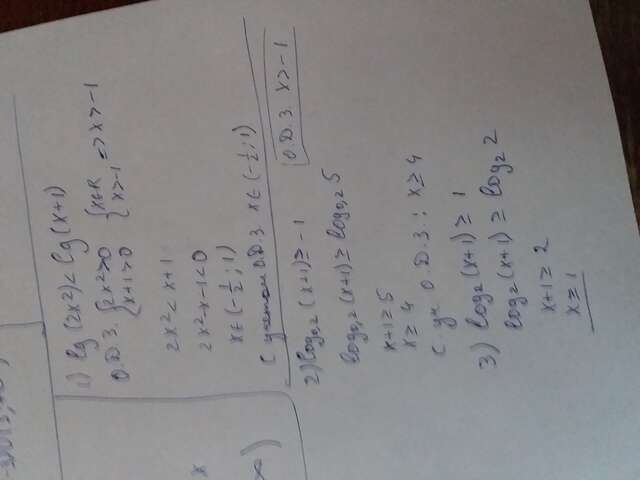 1) lg (2x²) < lg (x+1)
О.Д.З. { 2x² > 0 { x∈R => x > -1
x+1 > 0 x > -1
2x² < x+1
2x²-x-1<0
x∈(-1/2; 1)
С учетом О.Д.З. x∈(-1/2; 1)
2) log₀,₂ (x+1) ≥ -1 О.Д.З. x > -1
log₀,₂ (x+1) ≥ log₀,₂ 5
x+1 ≥ 5
x ≥ 4
С уч. О.Д.З.: x ≥ 4
3) log₂ (x+1) ≥ 1
log₂ (x+1) ≥ log₂ 2
x+1 ≥ 2
x ≥ 1
x
∞)